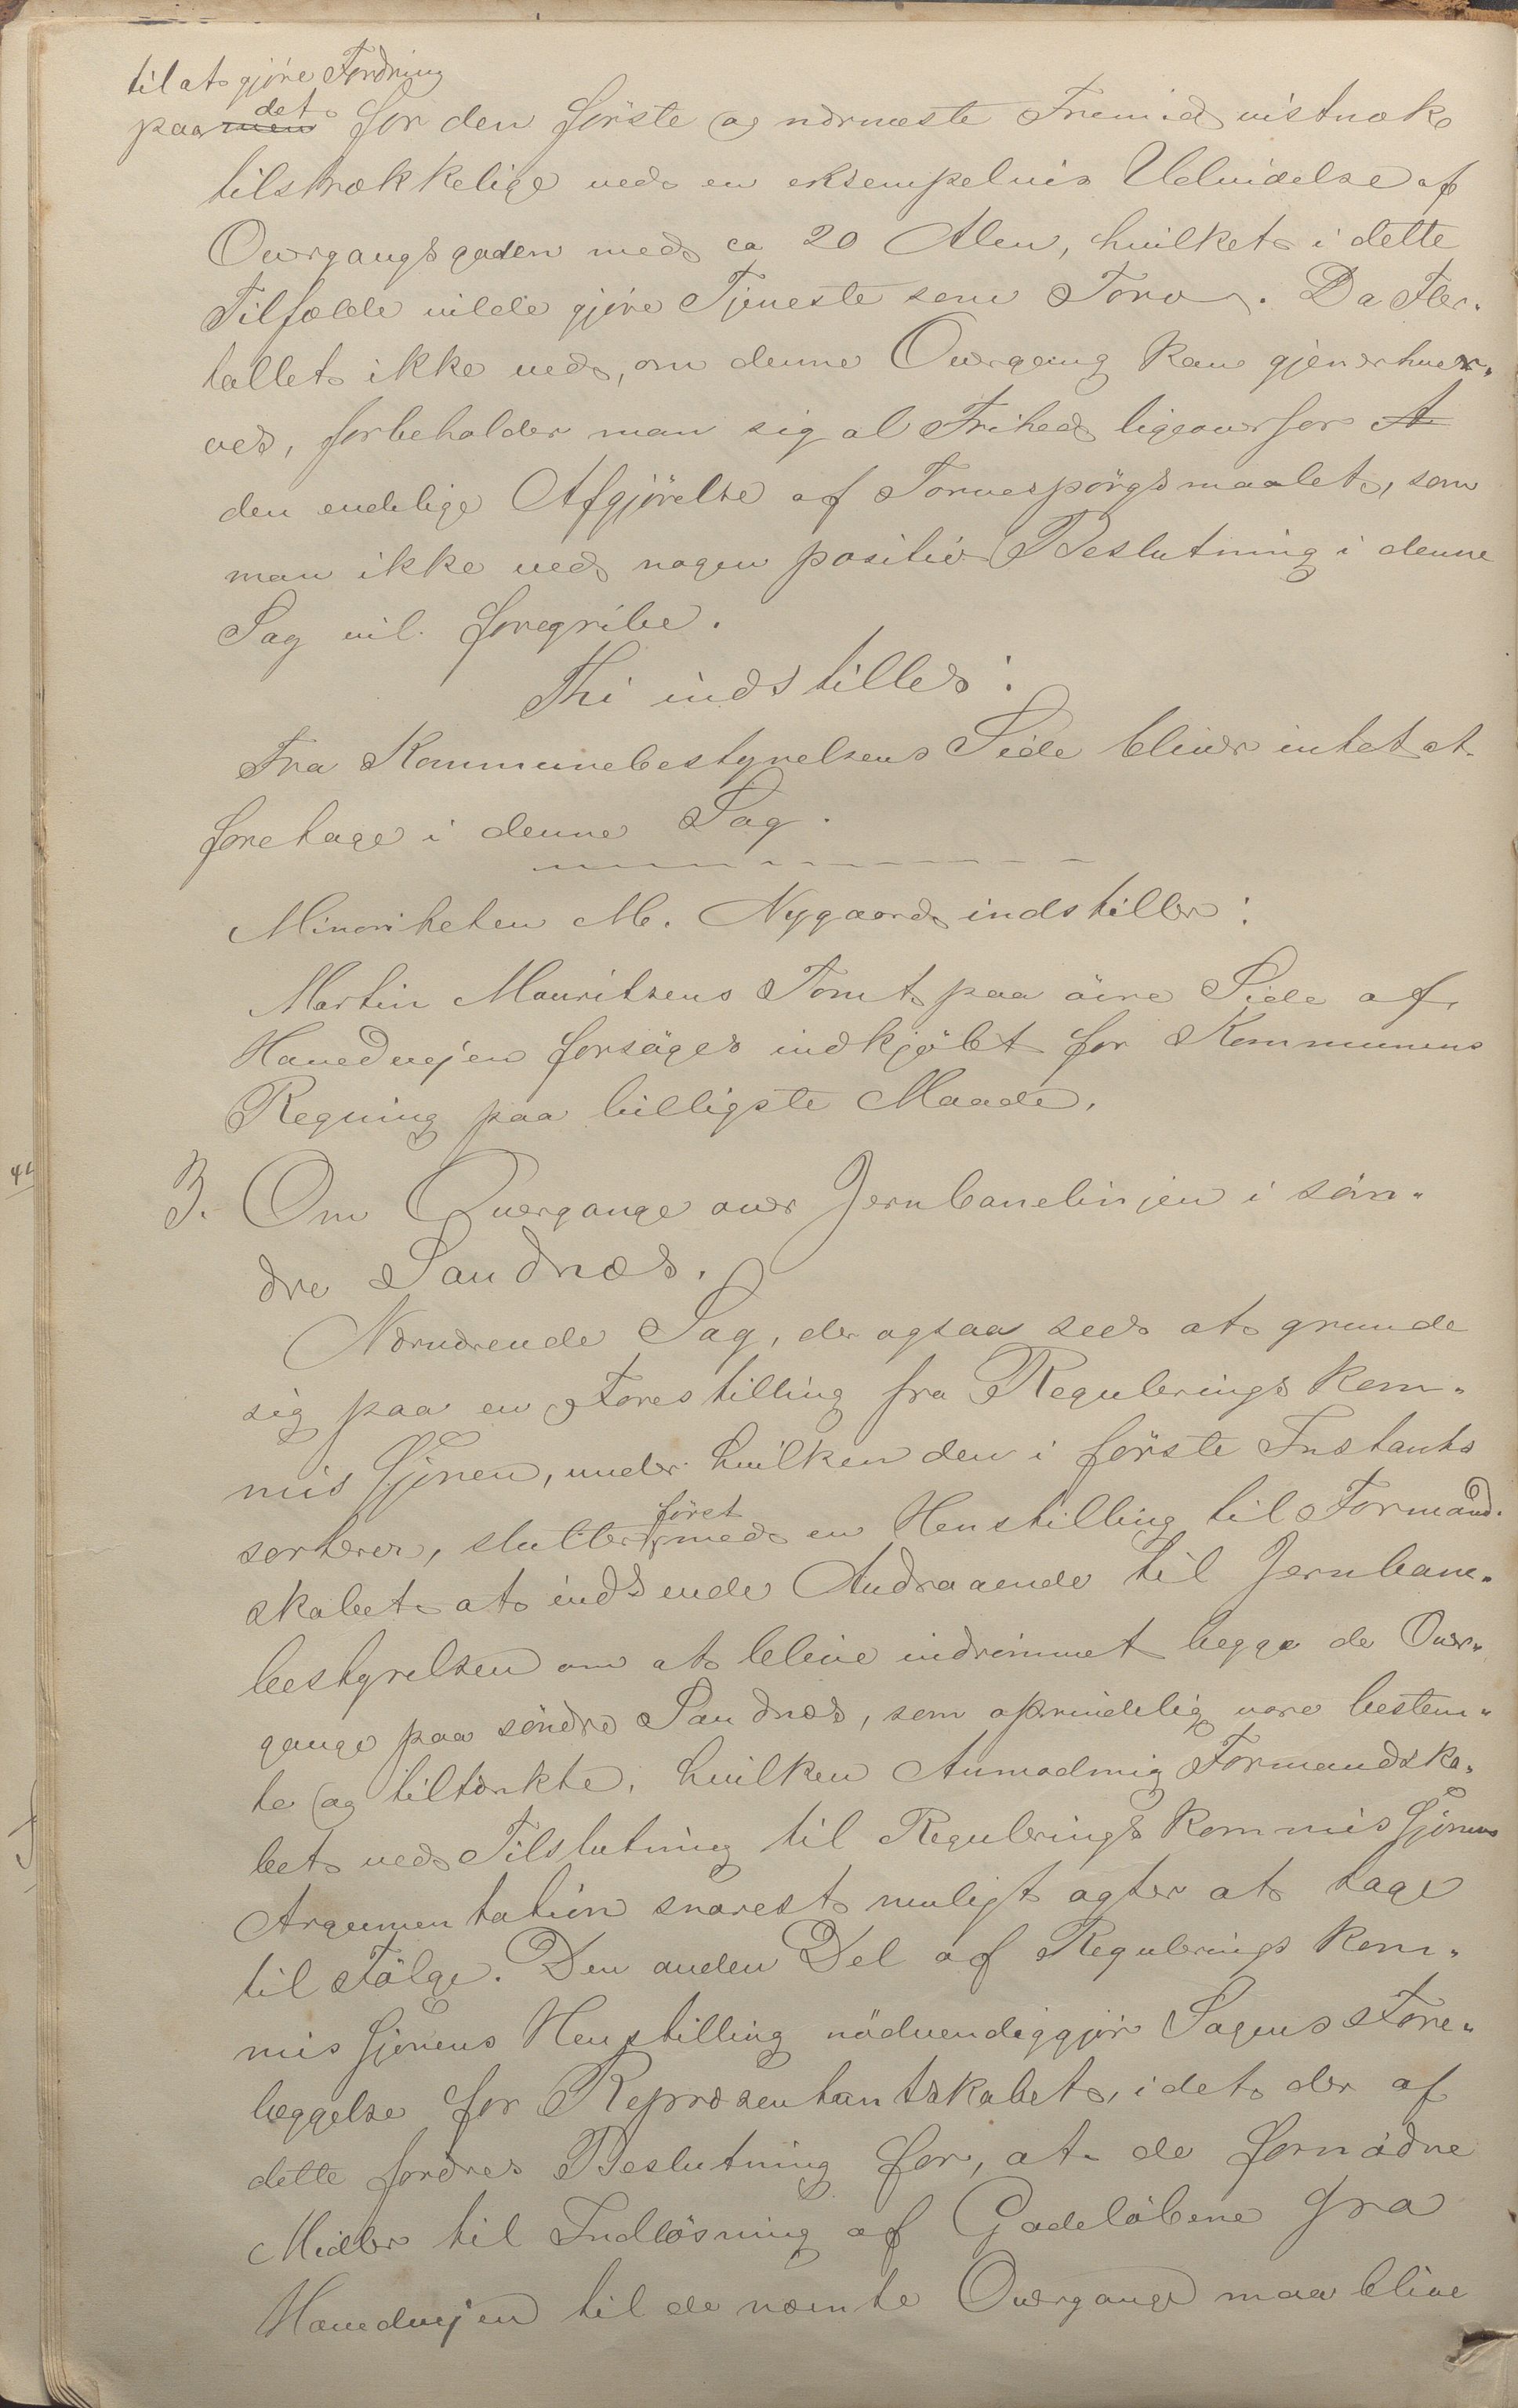 til at gjöre Fordring
paa men det for den förste og nærmeste Fremtid vistnok
tilstrækkelige ved en eksempelvis Udvidelse af
Overgangsgaden med ca 20 Alen, hvilket i dette
Tilfælde vilde gjöre Tjeneste som Torv. Da Fler-
tallet ikke ved, om denne Overgang kan gjenerhver-
ves, forbeholder man sig al Frihed ligeoverfor A
den endelige Afgjörelse af Torvespörgsmaalet, som
man ikke ved nogen positiv Beslutning i denne
Sag vil foregribe.
Thi indstilles:
Fra Kommunebestyrelsens Side bliver intet at
foretage i denne Sag.
Minoriteten M. Nygaard indstiller:
Martin Mauritzens Tomt paa övre Side af
Hovedvejen forsöges indkjöbt for Kommunens
Regning paa billigste Maade.
41
3. Om Overgange over Jernbanelinjen i sön-
dre Sandnæs.
Nærværende Sag, der ogsaa sees at grunde
sig paa en Forestilling fra Regulerings kom-
missjonen, under hvilken den i förste Instants
sorterer, slutter föret med en Henstilling til Formand-
skabet at indsende Andragende til Jernbane-
bestyrelsen om at blive indrömmet begge de Over-
gange paa söndre Sandnæs, som oprindelig vare bestem-
te og tiltænkte, hvilken Anmodning Formandska-
bet ved Tilslutning til Regulerings kommissjonens
Argumentation snarest muligt agter at tage
til Fölge. Den anden Del af Regulerings kom-
missjonens Henstilling nödvendiggjör Sagens Fore-
læggelse for Repræsentantskabet, idet der af
dette fordres Beslutning for, at de fornödne
Midler til Indlösning af Gadelöbene fra
Hovedvejen til de nævnte Overgange maa blive